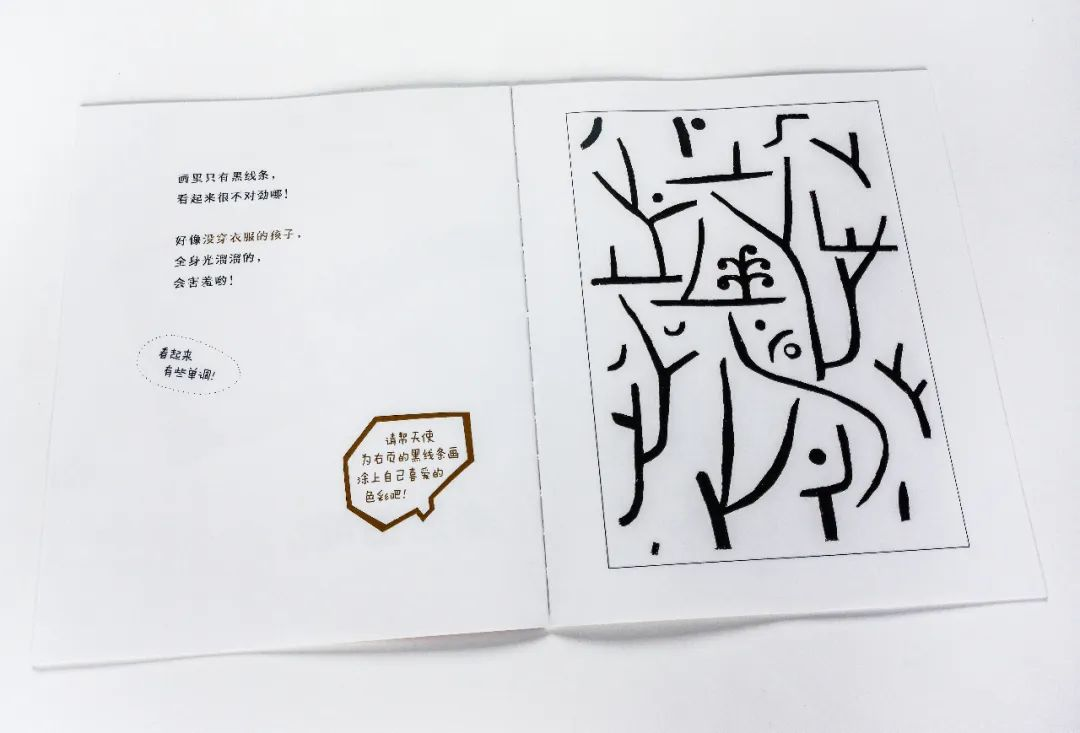 画里只有黑线条，
看起来很不对劲哪！
好像没穿衣服的孩子，
全身光溜溜的，
会害羞哟！
看起来
有些单调！
请帮天使
为右页的黑线条画
涂上自己喜爱的
色彩吧！